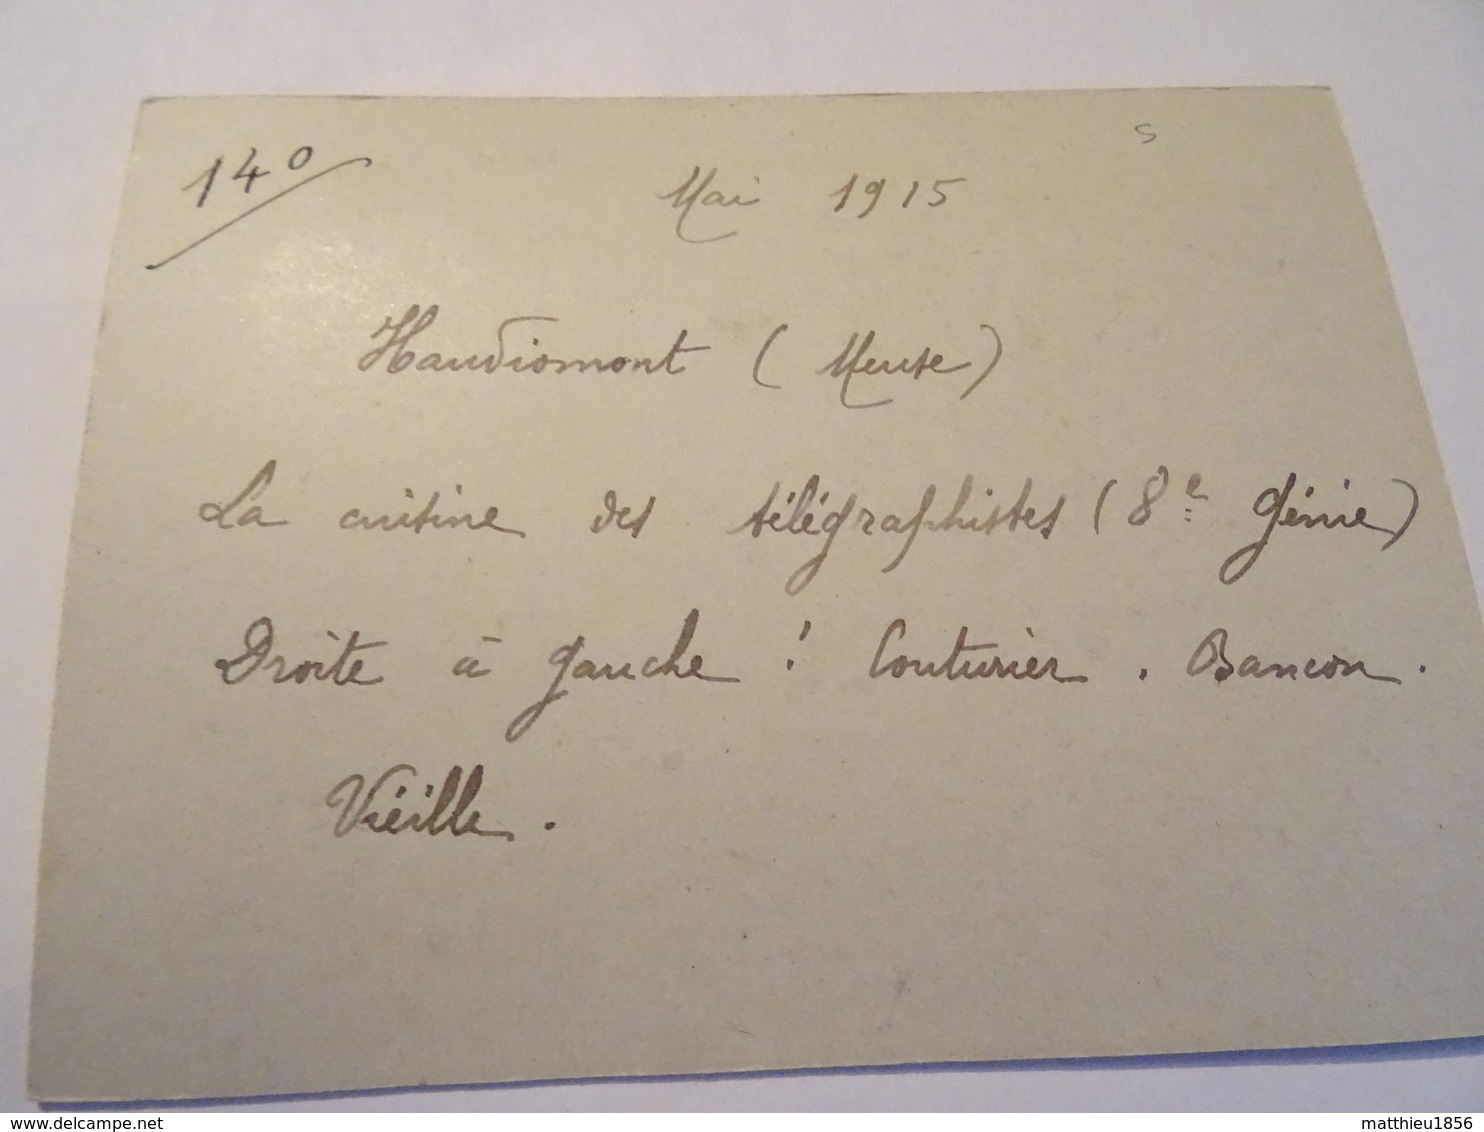 14° Mai 1915 s
Haudiomont (Meuse)
La cuisine des télégraphistes (8e Génie)
Droite à gauche : Couturier. Bancon.
Vieille.
delcampe.net
matthieu1856